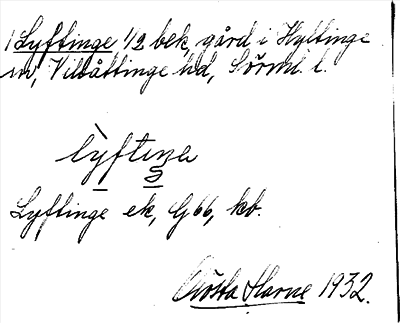 1 Lyftinge 1/2 bek, gård i Hyltinge
sn, Villåttinge hd, Sörml. l.
lyftiŋɐ
Lyftinge ek, G 66, kb.
Gösta Harne 1932.